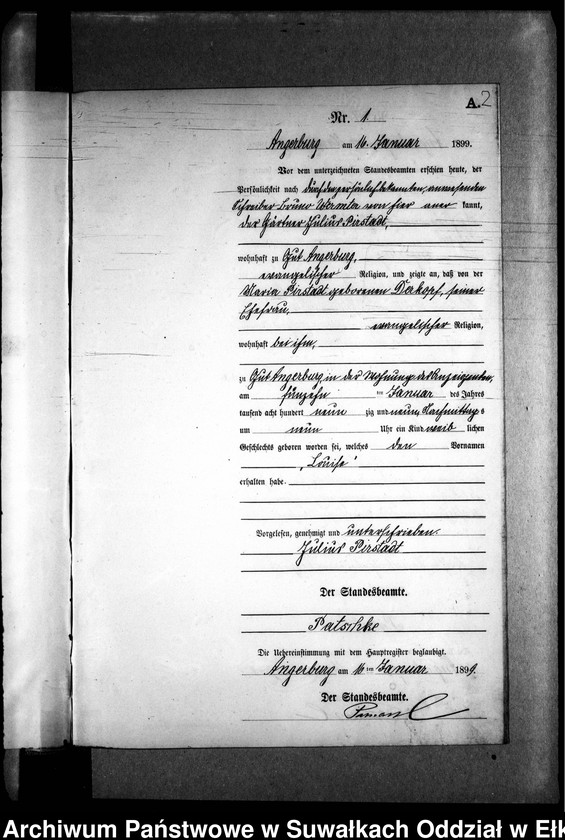 A. 2
Nr. 1.
Angerburg am 16. Januar 1899.
Vor dem unterzeichneten Standesbeamten erschien heute, der
Persönlichkeit nach durch den persönlich bekannten, anwesenden
Schreiber Bruno von hier aner kannt,
der Gärtner Julius Pirstadt,
wohnhaft zu Gut Angerburg,
evangelischer Religion, und zeigte an, daß von der
Maria Pirstadt geborenen Derkopf, seiner
Ehefrau,
evangelischer Religion,
wohnhaft bei ihm,
zu Gut Angerburg in der Wohnung des Anzeigenden,
am fünzehn ten Januar des Jahres
tausend acht hundert neun zig und neun, Nachmittags
um neun Uhr ein Kind weib lichen
Geschlechts geboren worden sei, welches den Vornamen
„Louise“
erhalten habe.
Vorgelesen, genehmigt und unterschrieben.
Julius Pirstadt
Der Standesbeamte.
Patschke
Die Uebereinstimmung mit dem Hauptregister beglaubigt.
Angerburg am 16 ten Januar 1899.
Der Standesbeamte.
Archiwum Państwowe w Suwałkach Oddział w Ełk